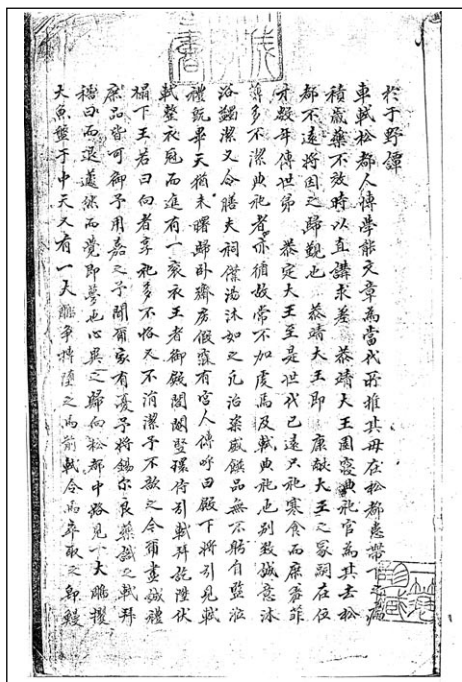 於于野譚
車軾松都人博學能文章為當代所推其母在松都患帶下之病
積歲藥不效時以直講求差 恭靖大王園寢典祀官為其去松
都不遠將因之歸覲也 恭靖大王即 康獻大王之冢嗣在位
才數年傳世弟 恭定大王至是世代已遠只祀寒食而庶羞菲
薄多不潔典祀者亦循故常不加虔焉及軾典祀也别致誠意沐
浴蠲潔又令膳夫祠傑湯沐如之凡治粢盛饌品無不躬自監莅
禮旣畢天猶未曙歸臥齋房假寐有宮人傳呼曰殿下將引見軾
軾整衣冠而進有一衮衣王者御殿閣閹竪環侍引軾拜於陛伏
榻下王若曰向者享祀多不恪又不消潔予不歆之今爾盡誠禮
庶品皆可御予用嘉之予聞爾家有憂予將錫尔良藥識之軾拜
稽首而退蘧然而覺即夢也心異之歸向松都中路見一大鵰攫
大魚盤于中天又有一大鵰爭搏墮之馬前軾令馬卒取之卽鰻